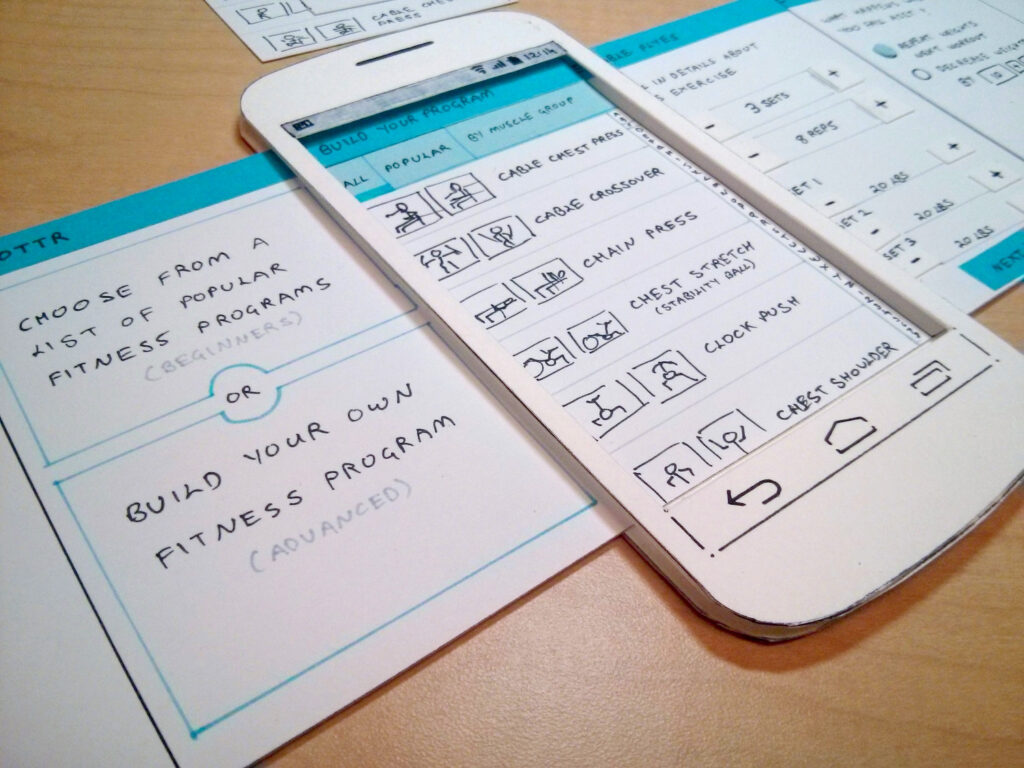 CABLE
PRESS
OTTR
CHOOSE FROM A
LIST OF POPULAR
FITNESS PROGRAMS
(BEGINNERS)
OR
BUILD YOUR OWN
FITNESS PROGRAM
(ADVANCED)
12:14
BUILD YOUR PROGRAM
ALL
POPULAR
BY MUSCLE GROUP
CABLE CHEST PRESS
CABLE CROSSOVER
CHAIN PRESS
CHEST STRETCH
(STABILITY BALL)
CLOCK PUSH
CHEST SHOULDER
IN DETAILS ABOUT
EXERCISE
- 3 SETS +
- 8 REPS +
SET 1 - 20 LBS +
SET 2 - 20 LBS +
SET 3 - 20 LBS
NEXT
WHAT HAPPENS
REPEAT WEIGHTS
NEXT WORKOUT
DECREASE
BY